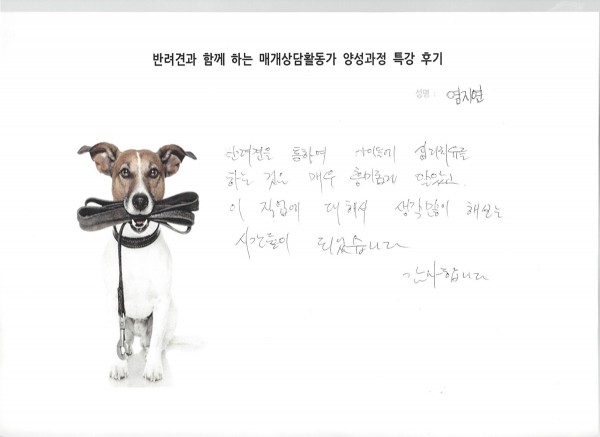 반려견과 함께 하는 매개상담활동가 양성과정 특강 후기
성명 : 염지연
반려견을 통하여 아이들에 심리치유를
하는 것은 매우 흥미롭게 알았고
이 직업에 대해서 생각많이 해보는
시간들이 되었습니다
감사합니다